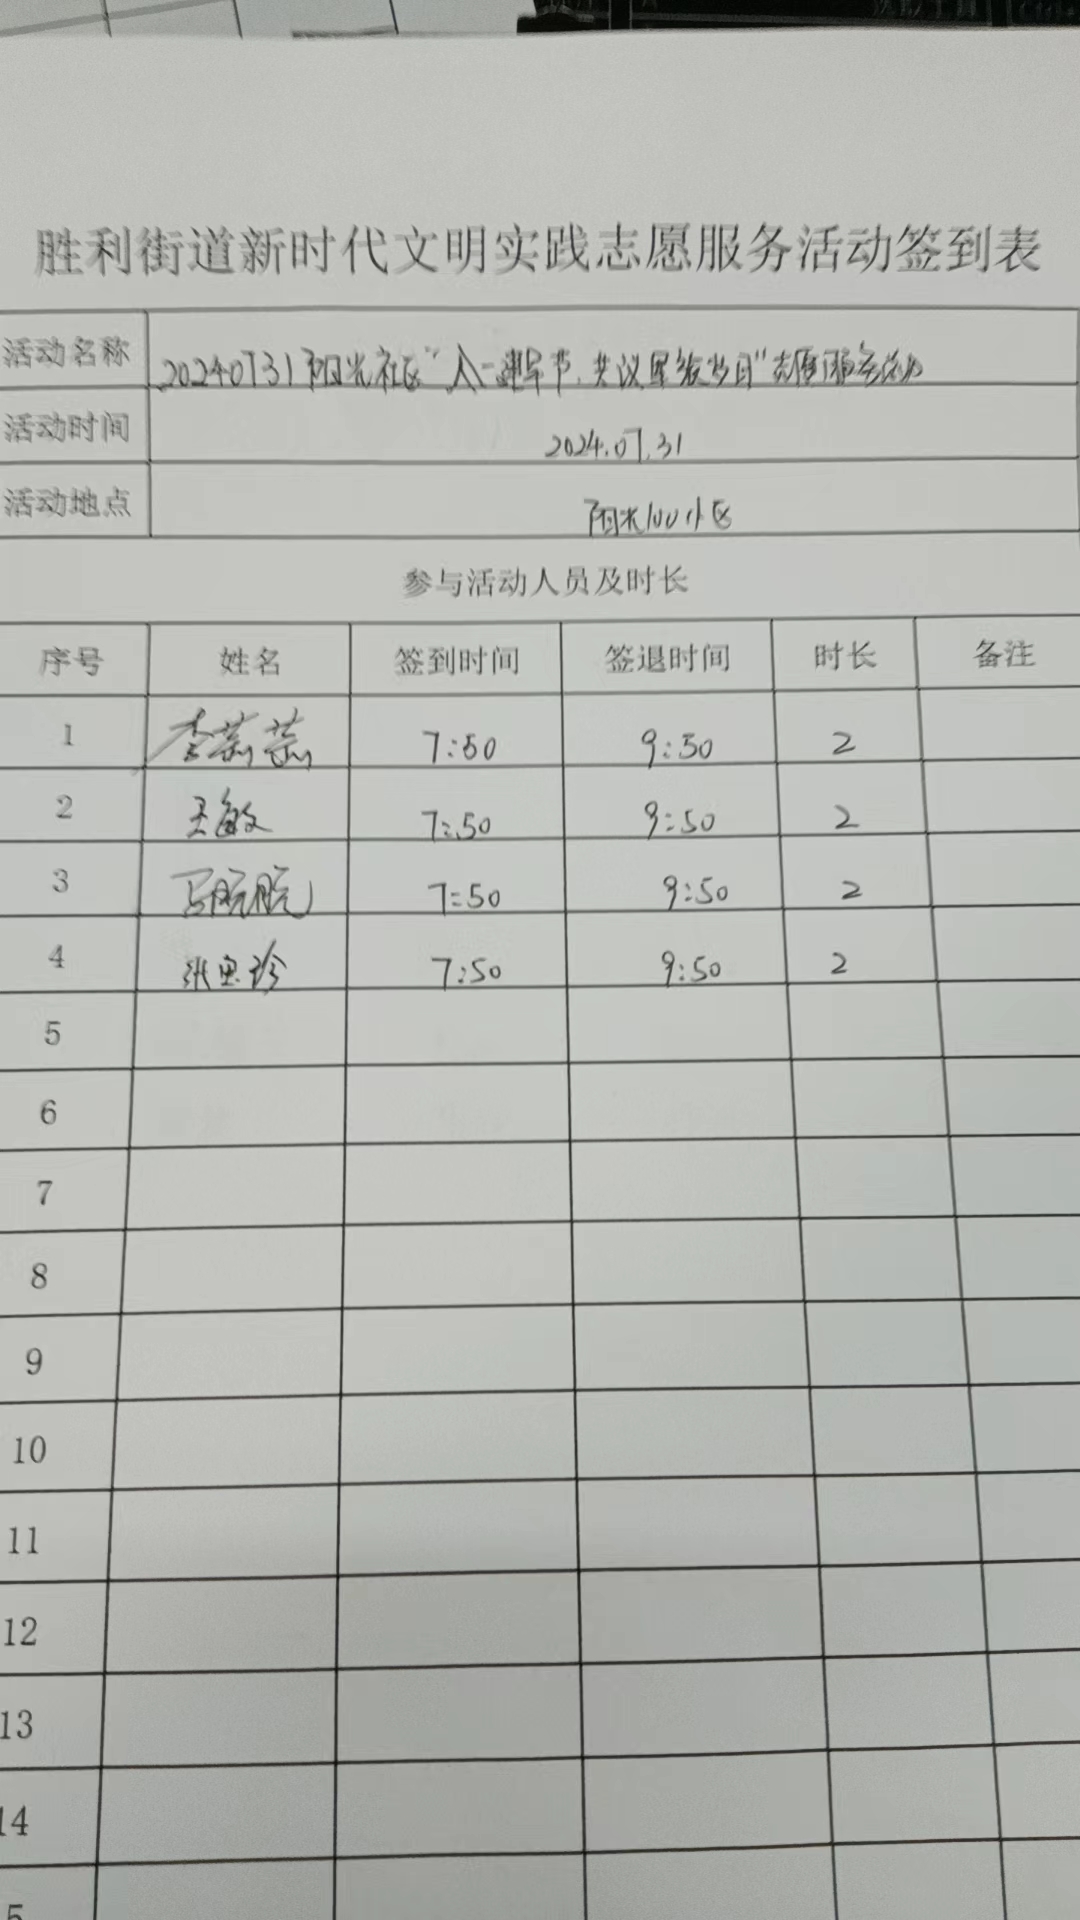 胜利街道新时代文明实践志愿服务活动签到表
活动名称 20240731阳光社区“八一建军节,共议军旅岁月”志愿服务活动
活动时间 2024.07.31
活动地点 阳光100小区
参与活动人员及时长
序号 姓名 签到时间 签退时间 时长 备注
1 李 7:50 9:50 2
2 王敏 7:50 9:50 2
3 马皖皖 7:50 9:50 2
4 张思珍 7:50 9:50 2
5
6
7
8
9
10
11
12
13
14
5